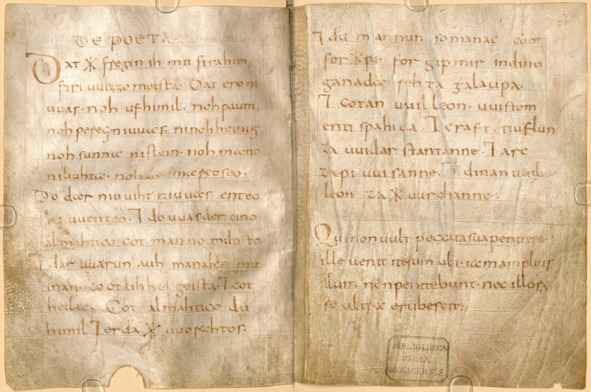 DE POETA
Dat *fregin ih mit firahim
firi uuizzo meista. Dat ero ni
uuas. noh ufhimil. noh paum
noh pereg ni uuas. ninohheinig
noh sunna nistein. noh mano
niliuhta. noh der mareo seo.
Do dar niuuiht niuuas enteo
ni uuenteo. ⁊ do uuas der eino
almahtico cot manno miltisto.
⁊ dar uuarun auh manake mit
inan. cootlihhe geista. ⁊ cot
heilac. Cot almahtico du
himil ⁊ erda *uuorahtos.
⁊ du mannun somanac coot
for*pi. for gipmir indino
ganada rehta galaupa.
⁊ cotan uuilleon. uuistom
enti spahida. ⁊ craft. tiuflun
za uuidar stantanne. ⁊ arc
za piuuisanne. ⁊ dinan uuil
leon za *uurchanne.
Qui non vult peccata sua penitere.
ille venit iterum ubi iam amplius
illum non penitebunt. nec illorum
se ultra erubescit.
BIBLIOTHECA
REGIA
MONACENSIS.